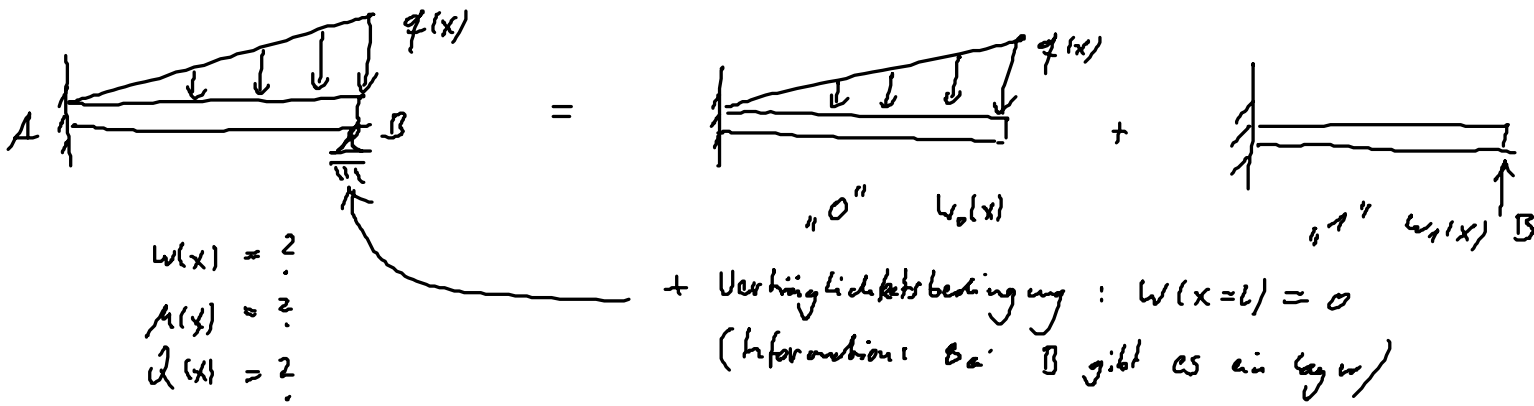 q(x)
A
B
=
q(x)
+
B
„0" w₀(x)
„1" w₁(x)
w(x) = ?
M(x) = ?
Q(x) = ?
+ Verträglichkeitsbedingung : w(x=l) = 0
(Information: Bei B gibt es ein Lager)